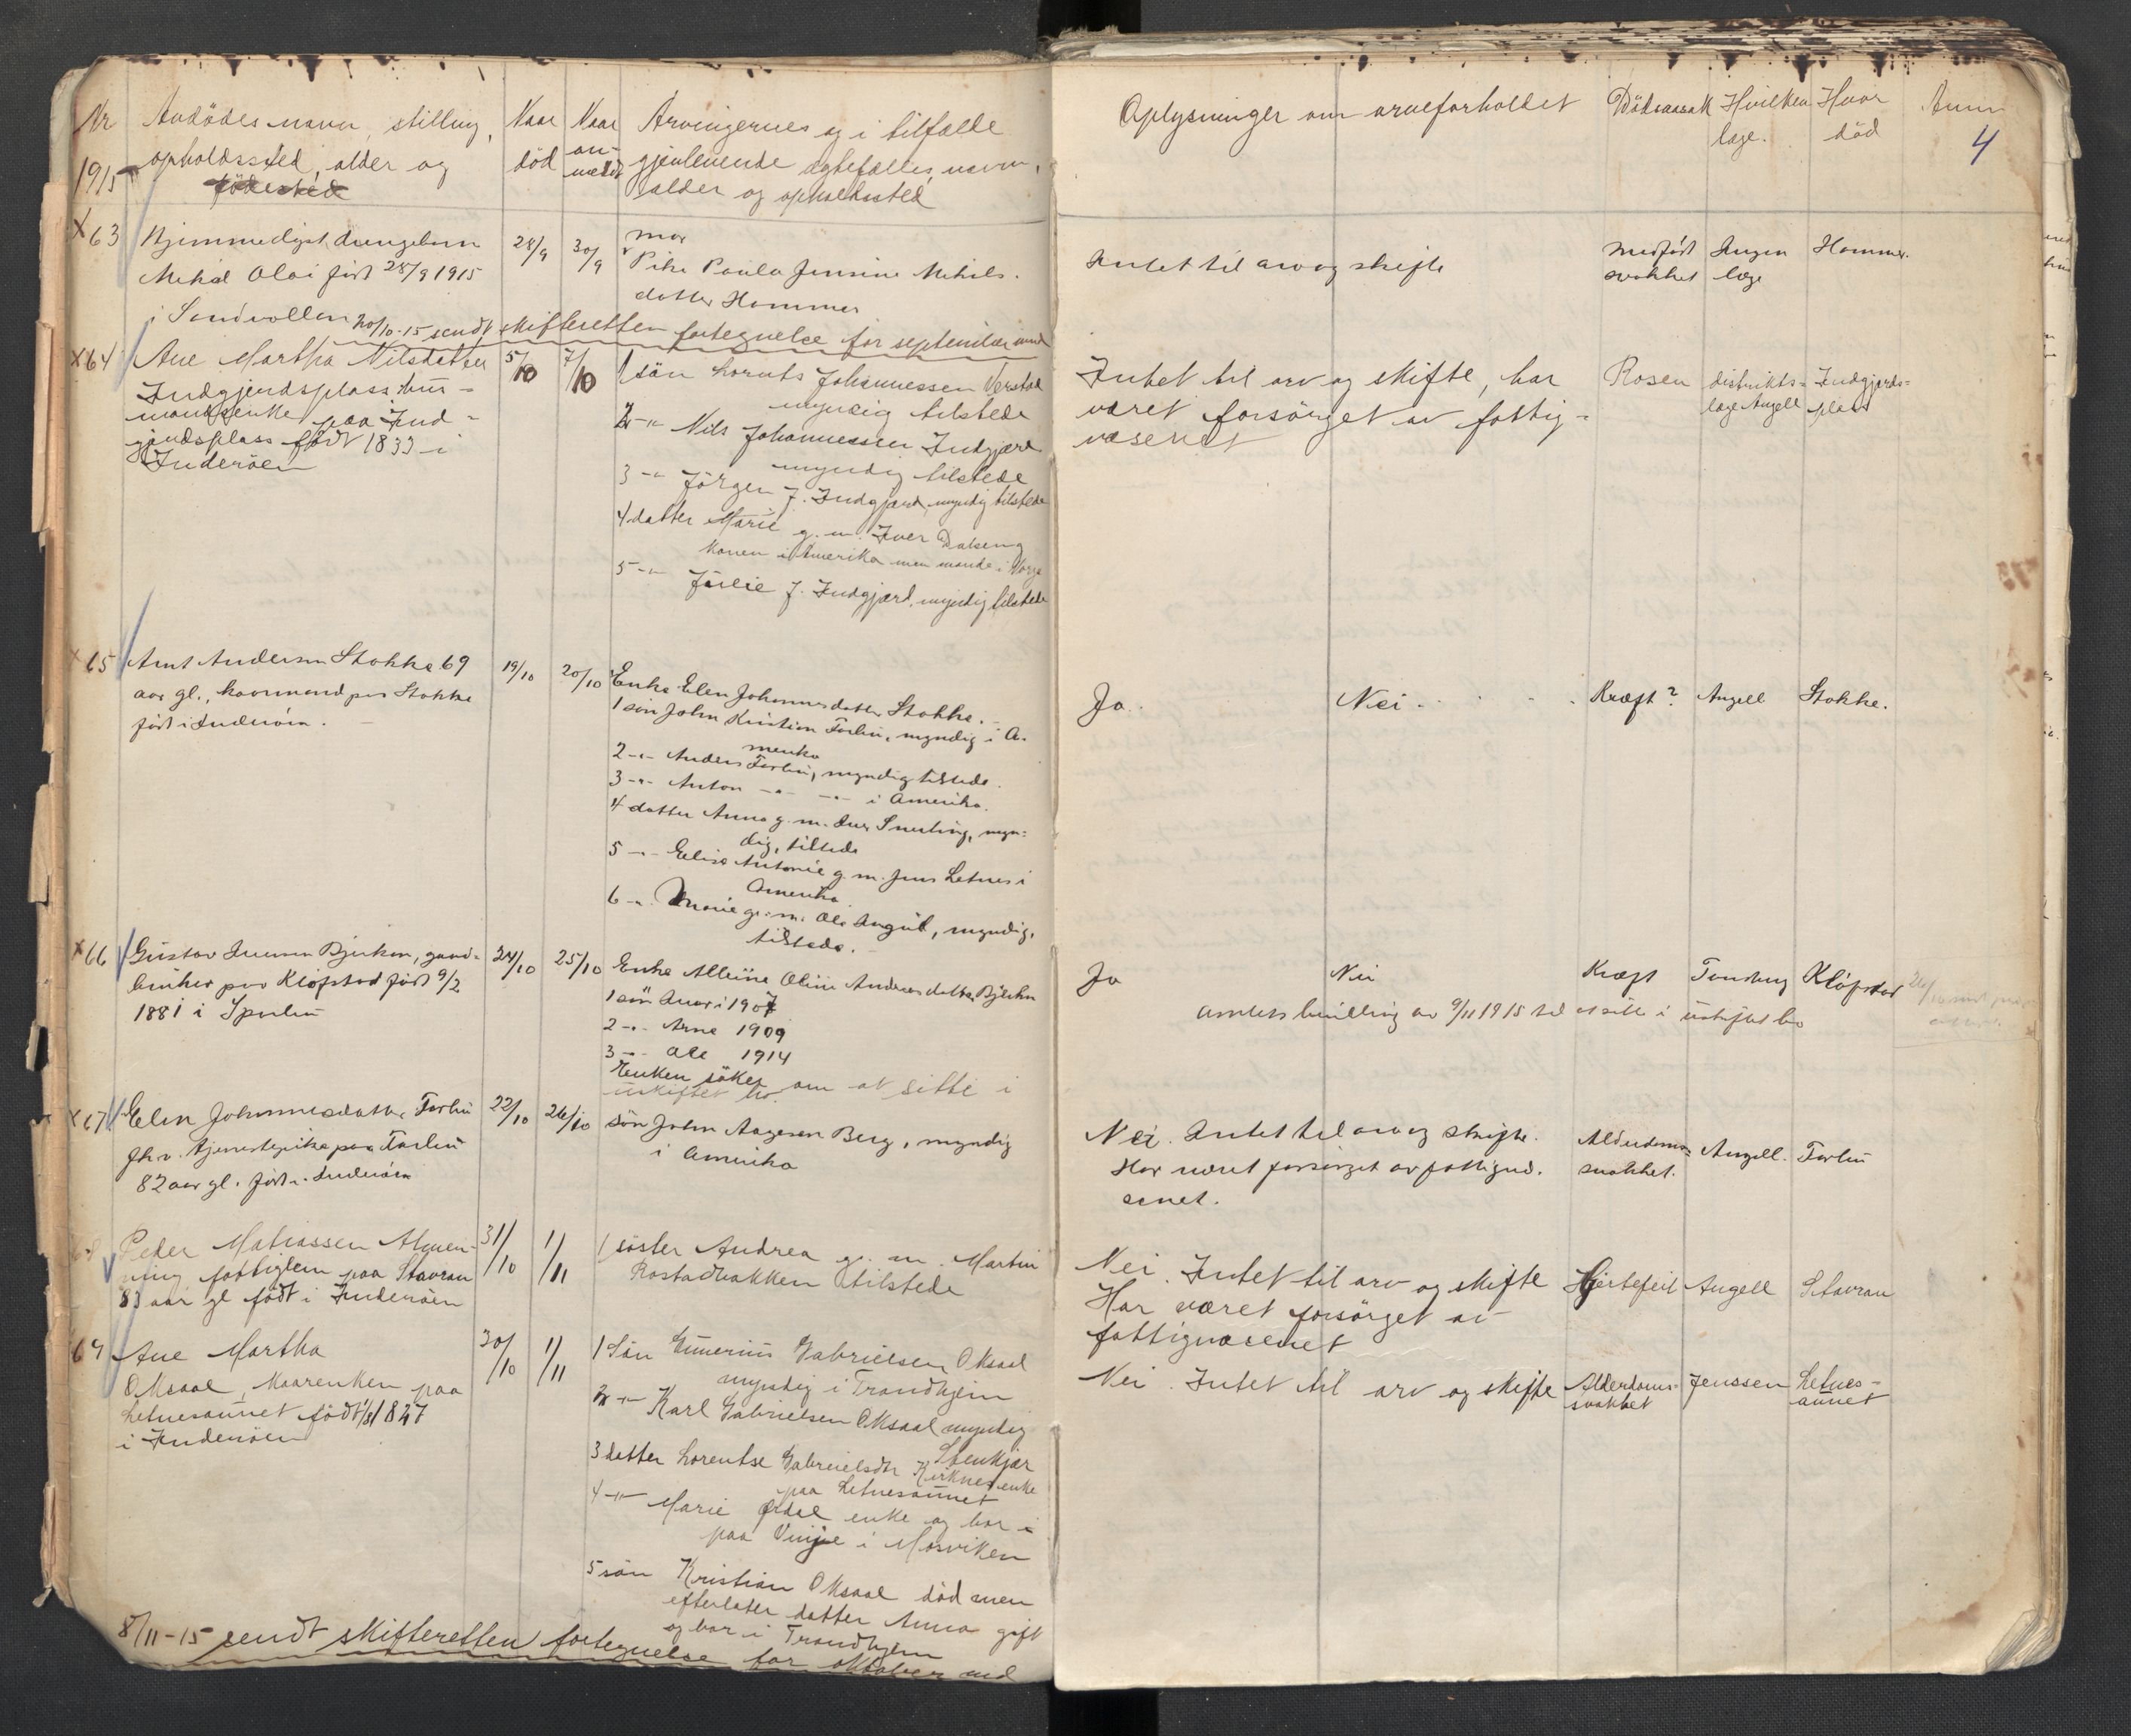 Nr
1915
Avdödes navn, stilling,
opholdssted, alder og
födested
Naar
död
Naar
an-
meldt
Arvingernes og i tilfælde
gjenlevende ægtefælles navn,
alder og opholdssted
Oplysninger om arveforholdet
Dödsaarsak
Hvilken
læge.
Hvor
död
Anm
4
x63
Hjemmedöpt drengebarn
Mekal Olai födt 28/9 1915
i Sandvollan
28/9
30/9
mor
Pike Paula Jensine Mekals-
datter Hammer
Intet til arv og skifte
Medfödt
svakhet
Ingen
læge
Hammer.
20/10-15 sendt skifteretten fortegnelse for september mnd
x64
Ane Martha Nilsdatter
Indgjerdsplass, hus-
mandsenke paa Ind-
gjerdsplass født 1833 i
Inderöen
5/10
7/10
1 sön Lornts Johannessen Verstad
myndig tilstede
2 -"- Nils Johannessen Indgjærd
myndig tilstede
3 -"- Jörgen J. Indgjærd, myndig tilstede
4 datter Marie g. m. Iver Dalseng
Konen i Amerika men mande i Norge
5 -"- Julie J. Indgjærd, myndig tilstede
Intet til arv og skifte, har
været forsörget av fattig-
væsenet
Rosen
distrikts-
læge Angell
Indgjerds-
plass
x65
Arnt Andersen Stokke 69
aar gl., kaarmand paa Stokke
födt i Inderöen.
19/10
20/10
Enke Elen Johannesdatter Stokke.
1 sön John Kristian Forlin, myndig i A-
merika
2 -"- Anders Forlin, myndig tilstede.
3 -"- Anton -"- -"- i Amerika.
4 datter Anna g. m. Snerting, myn-
dig, tilstede
5 -"- Elise Antonie g. m. Jens Letnes i
Amerika
6 -"- Marie g. m. Ole, myndig,
tilstede.
Ja.
Nei
Kræft?
Angell
Stokke.
x66
Gustav Bjerkan, gaard-
bruker paa Kløfstad födt 9/2
1881 i Sparbu
24/10
25/10
Enke Oline Andreasdatter Bjerkan
1 sön Ivar i 1907
2 -"- Arne 1909
3 -"- Ole 1914
Enken söker om at sitte i
uskiftet bo.
Ja
Nei
Kræft
Kløfstad
Amtets bevilling av 9/11 1915 til at sitte i uskiftet bo
x67
Elen Johannesdatter Forlin
fhv. tjenestepike paa Forlin
82 aar gl. födt i Inderöen
22/10
26/10
Sön John Aagesen Berg, myndig
i Amerika
Nei. Intet til arv og skifte.
Har været forsörget av fattigvæ-
senet.
Alderdoms-
svakhet.
Angell.
Forlin
68
Peder Matiassen Almen-
ning fattiglem paa Stavran
83 aar gl født i Inderöen
31/10
1/11
1 söster Andrea g. m. Martin
Rostadbakken tilstede
Nei. Intet til arv og skifte
Har været forsörget av
fattigvæsenet
Hjertefeil
Angell
Stavran
69
Ane Martha
Oksaal, Kaarenken paa
Letnesaunet født 1847
i Inderöen
30/10
1/11
1 Sön Gabrielsen Oksaal
myndig i Trondhjem
2 -"- Karl Gabrielsen Oksaal myndig
Stenkjær
3 datter Lorentse Gabrielsdtr Kirknes enke
paa Letnesaunet
4 -"- Marie enke og bor i
paa Vinje i Mosviken
5 sön Kristian Oksaal död men
efterlater datter Anna gift
og bor i Trondhjem
Nei. Intet til arv og skifte
Alderdoms-
svakhet
Jenssen
Letnes-
aunet
8/11-15 sendt skifteretten fortegnelse for oktober md